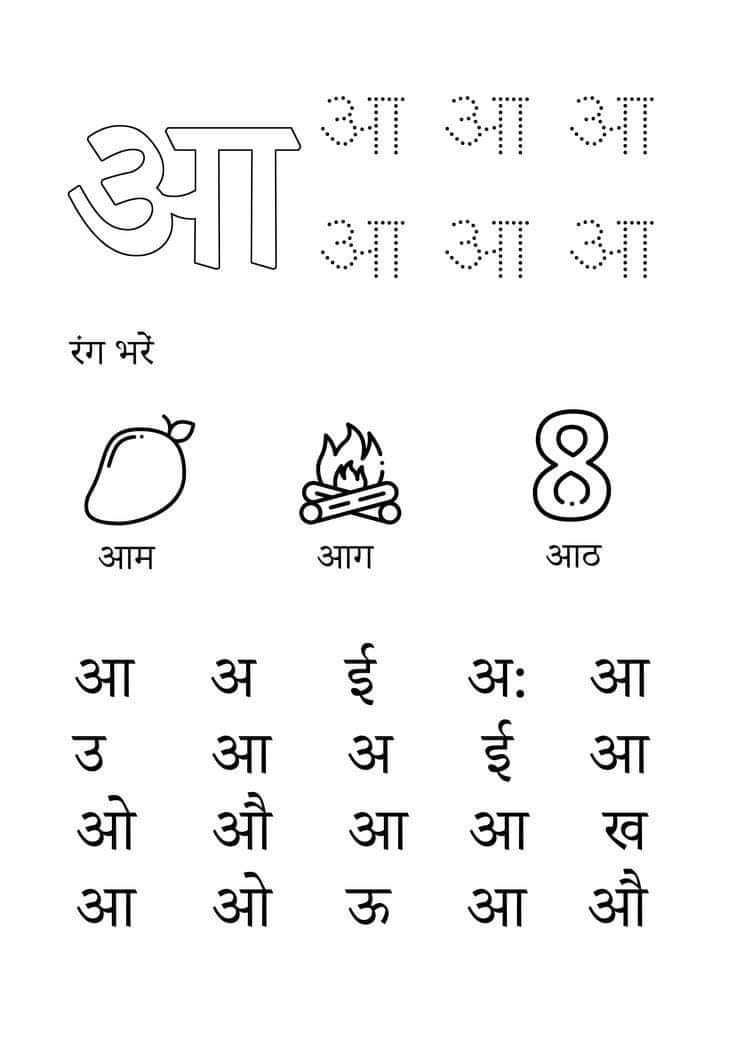 आ आ आ आ
आ आ आ
रंग भरें
8
आम आग आठ
आ अ ई अः आ
उ आ अ ई आ
ओ औ आ आ ख
आ ओ ऊ आ औ